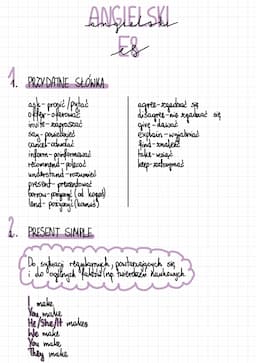 ANGIELSKI
angielski
E8
1. PRZYDATNE SŁÓWKA
ask - prosić / pytać
offer - oferować
invite - zapraszać
say - powiedzieć
cancel - odwołać
inform - poinformować
recommend - polecać
understand - rozumieć
present - prezentować
borrow - pożyczyć (od kogoś)
lend - pożyczyć (komuś)
agree - zgadzać się
disagree - nie zgadzać się
give - dawać
explain - wyjaśniać
find - znaleźć
take - wziąć
keep - zatrzymać
2. PRESENT SIMPLE
Do sytuacji regularnych, powtarzających się
i do ogólnych faktów (np. twierdzeń naukowych.
I make
You make
He/She/It makes
We make
You make
They make